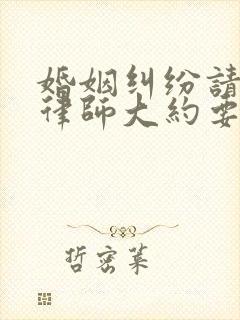 婚姻纠纷請
律師大約要
哲密葉